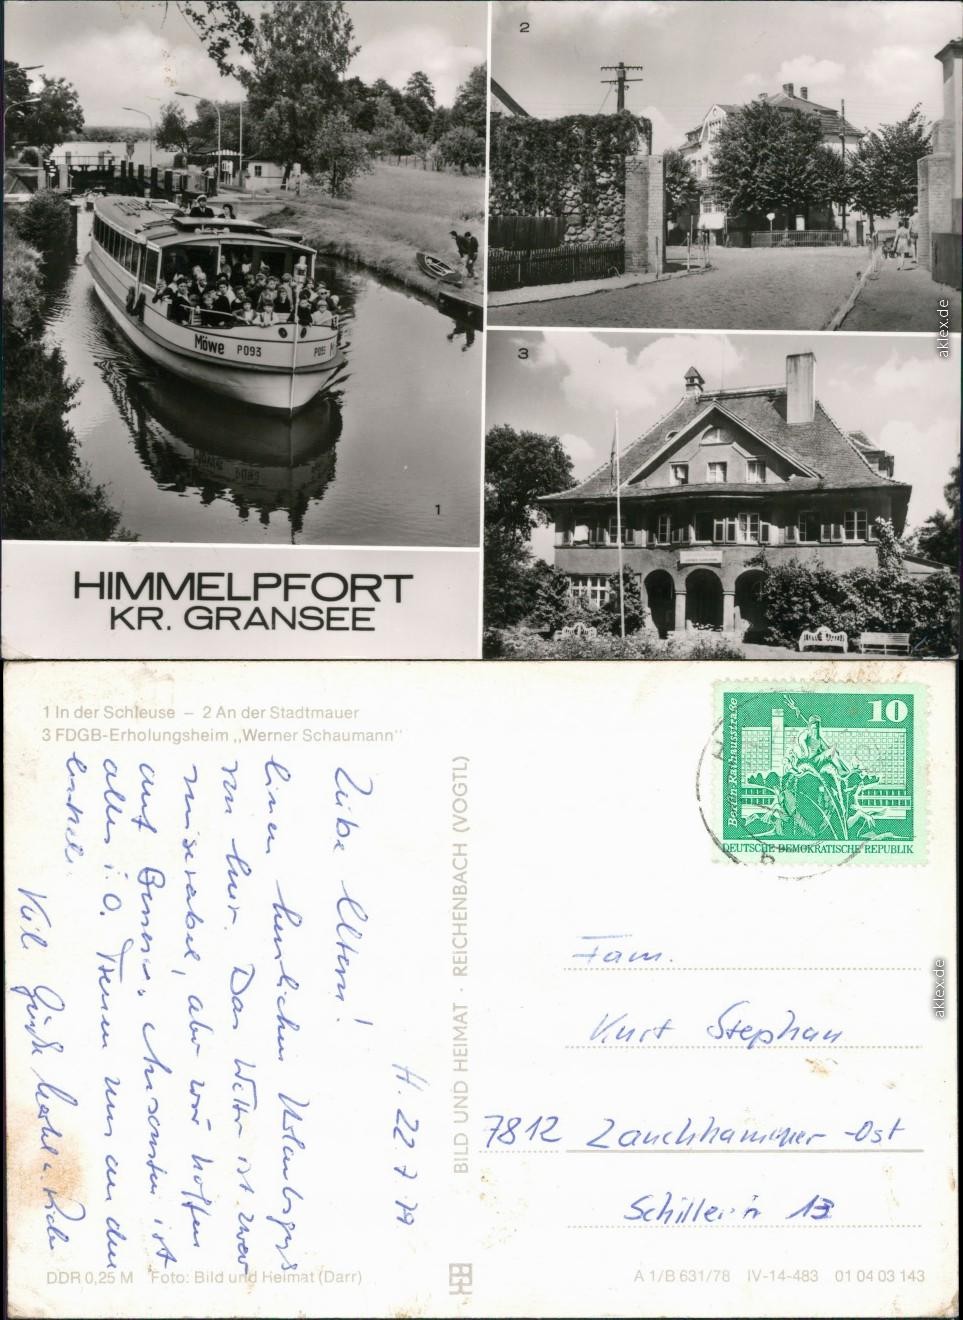 1
2
3
Möwe P093
P093 M
HIMMELPFORT
KR. GRANSEE
aklex.de
1 In der Schleuse – 2 An der Stadtmauer
3 FDGB-Erholungsheim „Werner Schaumann"
H. 22.7.79
Liebe Eltern!
einen herzlichen Urlaubsgruß
von hier. Das Wetter ist zwar
miserabel, aber wir hoffen
auf Besser. Ansonsten ist
alles i.O. Freuen uns an den
Viele Grüße
BILD UND HEIMAT · REICHENBACH (VOGTL)
Berlin-Rathausstraße
10
DEUTSCHE DEMOKRATISCHE REPUBLIK
Fam.
Kurt Stephan
7812 Lauchhammer-Ost
Schillerstr 13
DDR 0,25 M Foto: Bild und Heimat (Darr)
A 1/B 631/78 IV-14-483 01 04 03 143
aklex.de